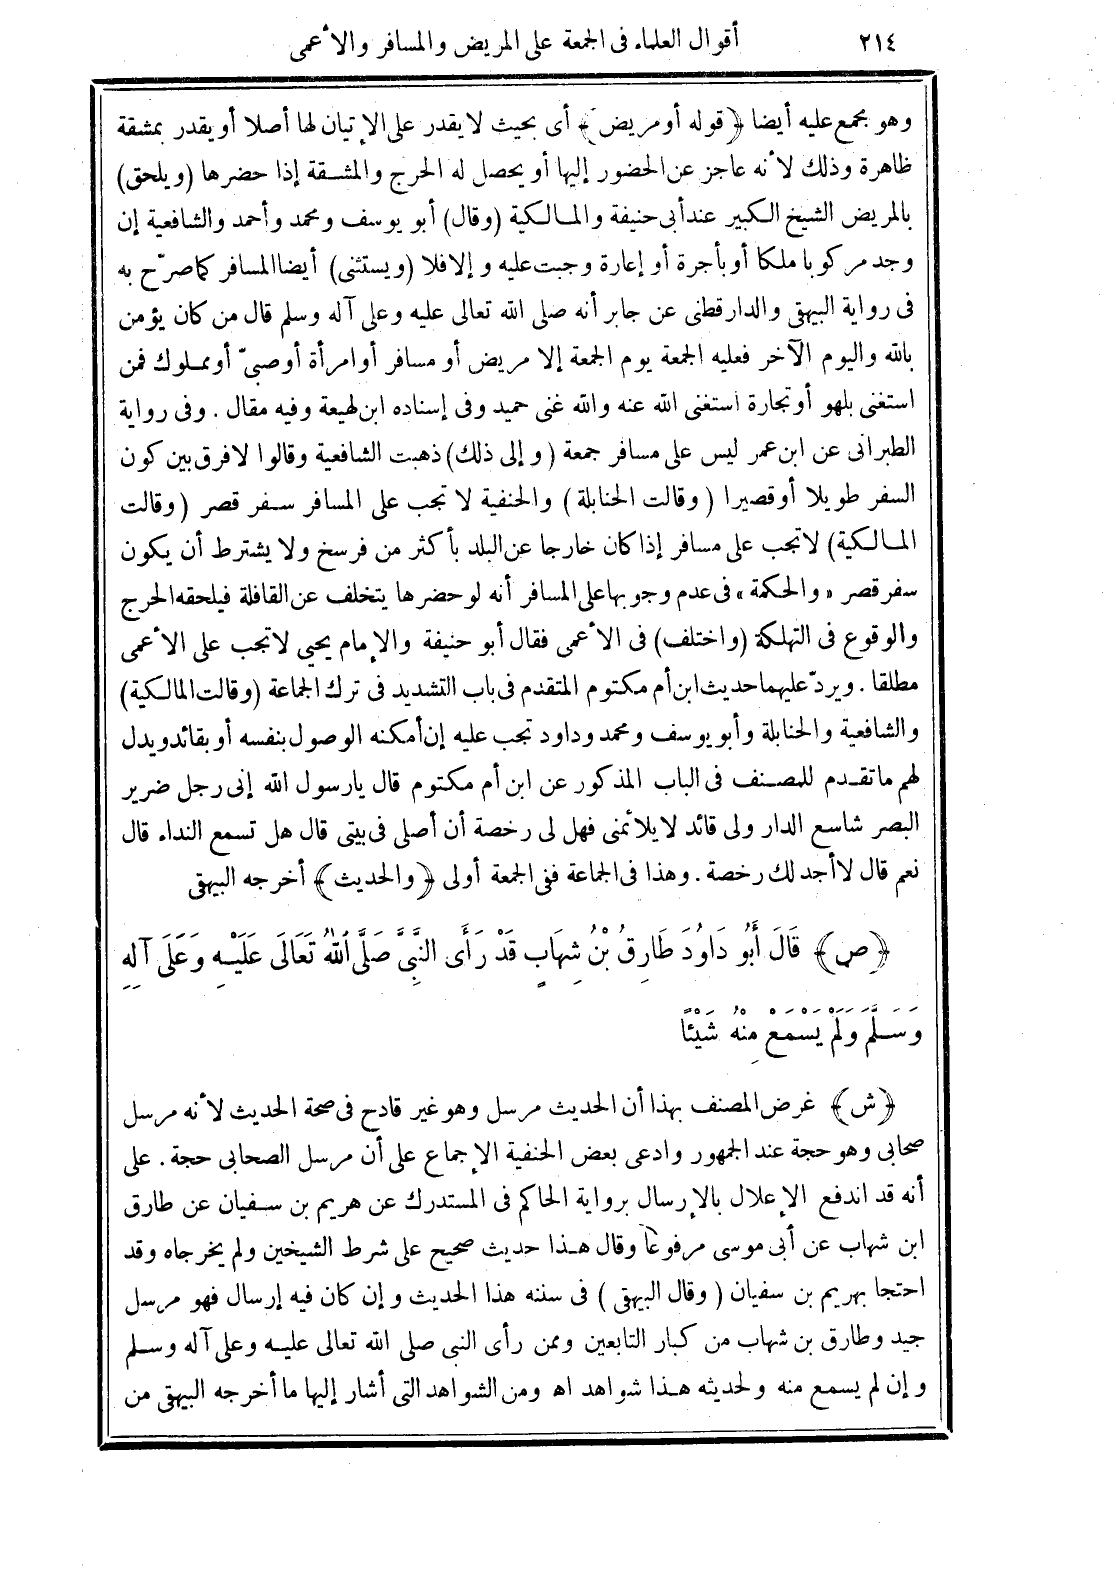 ٢١٤ أقوال العلماء فى الجمعة على المريض والمسافر والأعمى
وهو مجمع عليه أيضا ﴿قوله أو مريض﴾ أى بحيث لا يقدر على الإتيان لها أصلا أو يقدر بمشقة
ظاهرة وذلك لأنه عاجز عن الحضور إليها أو يحصل له الحرج والمشقة إذا حضرها (ويلحق)
بالمريض الشيخ الكبير عند أبى حنيفة والمالكية (وقال) أبو يوسف ومحمد وأحمد والشافعية إن
وجد مركوبا ملكا أو بأجرة أو إعارة وجبت عليه وإلا فلا (ويستثنى) أيضا المسافر كما صرّح به
فى رواية البيهقى والدارقطنى عن جابر أنه صلى الله تعالى عليه وعلى آله وسلم قال من كان يؤمن
بالله واليوم الآخر فعليه الجمعة يوم الجمعة إلا مريض أو مسافر أو امرأة أو صبىّ أو مملوك فمن
استغنى بلهو أو تجارة استغنى الله عنه والله غنى حميد وفى إسناده ابن لهيعة وفيه مقال. وفى رواية
الطبرانى عن ابن عمر ليس على مسافر جمعة (وإلى ذلك) ذهبت الشافعية وقالوا لا فرق بين كون
السفر طويلا أو قصيرا (وقالت الحنابلة) والحنفية لا تجب على المسافر سفر قصر (وقالت
المالكية) لا تجب على مسافر إذا كان خارجا عن البلد بأكثر من فرسخ ولا يشترط أن يكون
سفر قصر «والحكمة» فى عدم وجوبها على المسافر أنه لو حضرها يتخلف عن القافلة فيلحقه الحرج
والوقوع فى التهلكة (واختلف) فى الأعمى فقال أبو حنيفة والإمام يحيى لا تجب على الأعمى
مطلقا. ويردّ عليهما حديث ابن أم مكتوم المتقدم فى باب التشديد فى ترك الجماعة (وقالت المالكية)
والشافعية والحنابلة وأبو يوسف ومحمد وداود تجب عليه إن أمكنه الوصول بنفسه أو بقائد ويدل
لهم ما تقدم للمصنف فى الباب المذكور عن ابن أم مكتوم قال يا رسول الله إنى رجل ضرير
البصر شاسع الدار ولى قائد لا يلائمنى فهل لى رخصة أن أصلى فى بيتى قال هل تسمع النداء قال
نعم قال لا أجد لك رخصة. وهذا فى الجماعة ففى الجمعة أولى ﴿والحديث﴾ أخرجه البيهقى
﴿ص﴾ قَالَ أَبُو دَاوُدَ طَارِقُ بْنُ شِهَابٍ قَدْ رَأَى النَّبِيَّ صَلَّى اللهُ تَعَالَى عَلَيْهِ وَعَلَى آلِهِ
وَسَلَّمَ وَلَمْ يَسْمَعْ مِنْهُ شَيْئًا
﴿ش﴾ غرض المصنف بهذا أن الحديث مرسل وهو غير قادح فى صحة الحديث لأنه مرسل
صحابى وهو حجة عند الجمهور وادعى بعض الحنفية الإجماع على أن مرسل الصحابى حجة. على
أنه قد اندفع الإعلال بالإرسال برواية الحاكم فى المستدرك عن هريم بن سفيان عن طارق
ابن شهاب عن أبى موسى مرفوعا وقال هذا حديث صحيح على شرط الشيخين ولم يخرجاه وقد
احتجا بهريم بن سفيان (وقال البيهقى) فى سننه هذا الحديث وإن كان فيه إرسال فهو مرسل
جيد وطارق بن شهاب من كبار التابعين وممن رأى النبى صلى الله تعالى عليه وعلى آله وسلم
وإن لم يسمع منه ولحديثه هذا شواهد اه ومن الشواهد التى أشار إليها ما أخرجه البيهقى من